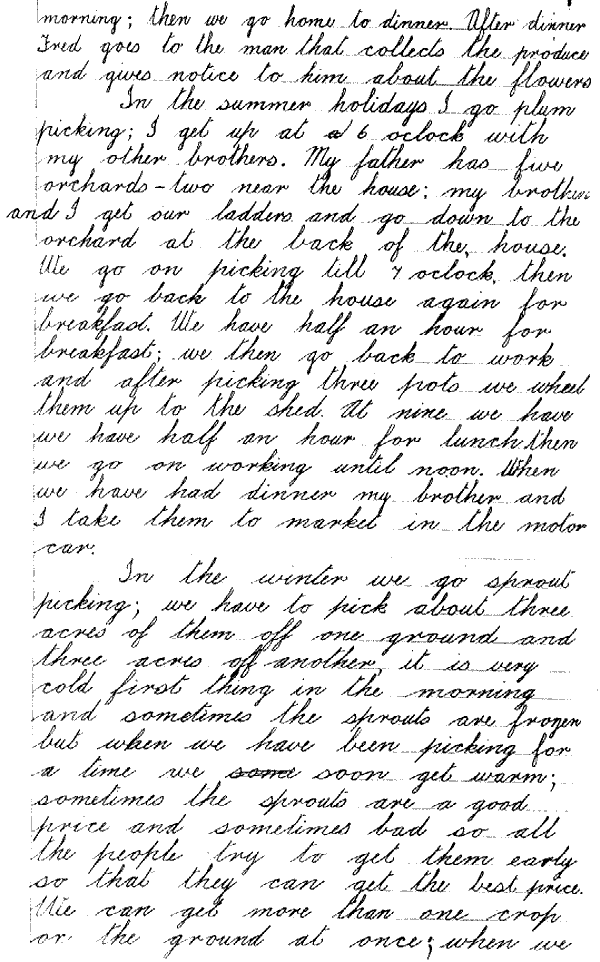 morning; then we go home to dinner. After dinner
Fred goes to the man that collects the produce
and gives notice to him about the flowers
In the summer holidays I go plum
picking; I get up at 6 oclock with
my other brothers. My father has five
orchards - two near the house; my brothers
and I get our ladders and go down to the
orchard at the back of the house.
We go on picking till 7 oclock, then
we go back to the house again for
breakfast. We have half an hour for
breakfast; we then go back to work
and after picking three pots we wheel
them up to the shed. At nine we have
we have half an hour for lunch then
we go on working until noon. When
we have had dinner my brother and
I take them to market in the motor
car.
In the winter we go sprout
picking; we have to pick about three
acres of them off one ground and
three acres off another, it is very
cold first thing in the morning
and sometimes the sprouts are frozen
but when we have been picking for
a time we some soon get warm;
sometimes the sprouts are a good
price and sometimes bad so all
the people try to get them early
so that they can get the best price.
We can get more than one crop
or the ground at once; when we